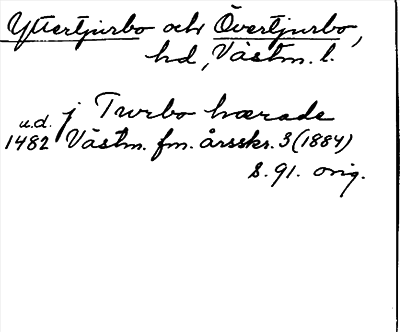 Yttertjurbo och Övertjurbo,
hd, Västm. l.
j Twrbo hærade
u.d.
1482 Västm. fm. årsskr. 3 (1884)
s. 91. orig.